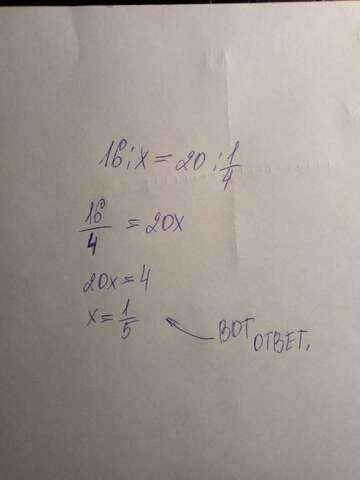 16 : x = 20 : 1/4
16/4 = 20x
20x = 4
x = 1/5
ВОТ ОТВЕТ.